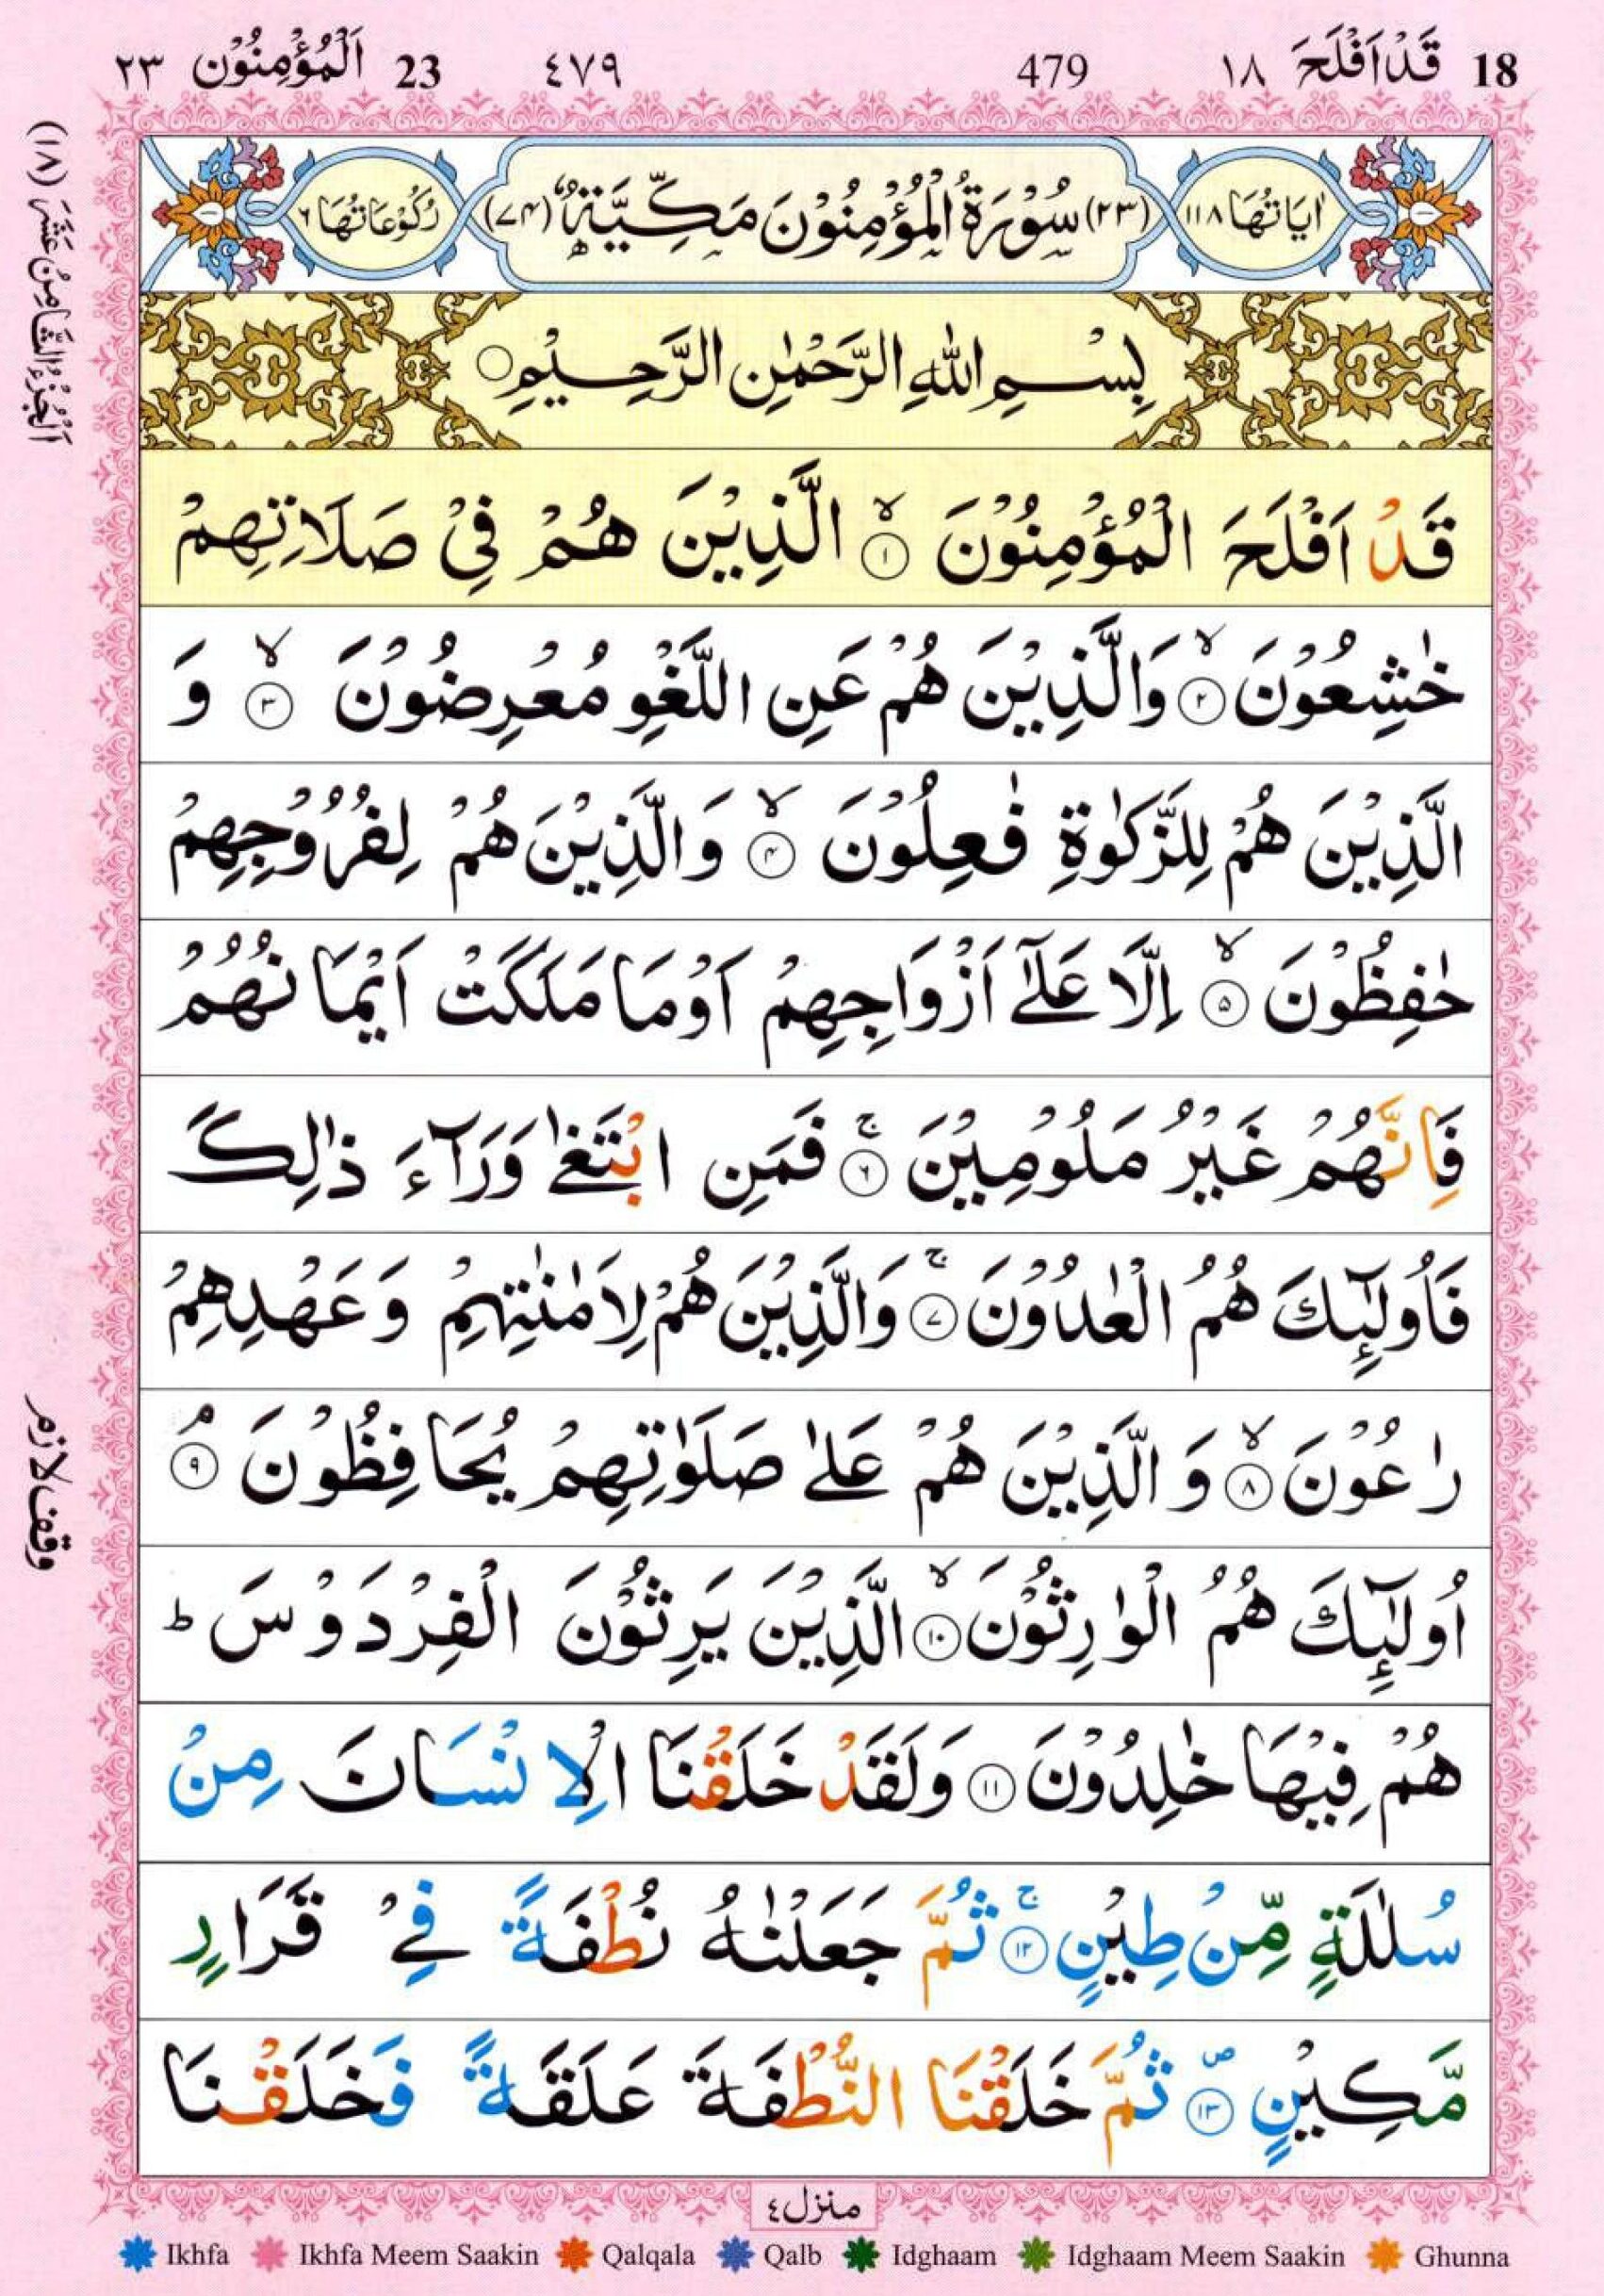 18 قَدْ اَفْلَحَ ١٨ 479 ٤٧٩ 23 اَلْمُؤْمِنُوْن ٢٣
اٰيَاتُهَا ١١٨ (٢٣) سُوْرَةُ الْمُؤْمِنُوْنَ مَكِّيَّةٌ (٧٤) رُكُوْعَاتُهَا ٦
بِسْمِ اللّٰهِ الرَّحْمٰنِ الرَّحِيْمِ
قَدْ اَفْلَحَ الْمُؤْمِنُوْنَ ۙ‏ ١ الَّذِيْنَ هُمْ فِيْ صَلَاتِهِمْ
خٰشِعُوْنَ ۙ‏ ٢ وَالَّذِيْنَ هُمْ عَنِ اللَّغْوِ مُعْرِضُوْنَ ۙ‏ ٣ وَ
الَّذِيْنَ هُمْ لِلزَّكٰوةِ فٰعِلُوْنَ ۙ‏ ٤ وَالَّذِيْنَ هُمْ لِفُرُوْجِهِمْ
حٰفِظُوْنَ ۙ‏ ٥ اِلَّا عَلٰٓى اَزْوَاجِهِمْ اَوْ مَا مَلَكَتْ اَيْمَانُهُمْ
فَاِنَّهُمْ غَيْرُ مَلُوْمِيْنَ ۚ‏ ٦ فَمَنِ ابْتَغٰى وَرَآءَ ذٰلِكَ
فَاُولٰٓئِكَ هُمُ الْعٰدُوْنَ ۚ‏ ٧ وَالَّذِيْنَ هُمْ لِاَمٰنٰتِهِمْ وَعَهْدِهِمْ
رٰعُوْنَ ۙ‏ ٨ وَالَّذِيْنَ هُمْ عَلٰى صَلَوٰتِهِمْ يُحَافِظُوْنَ ۘ‏ ٩
اُولٰٓئِكَ هُمُ الْوٰرِثُوْنَ ۙ‏ ١٠ الَّذِيْنَ يَرِثُوْنَ الْفِرْدَوْسَ ؕ
هُمْ فِيْهَا خٰلِدُوْنَ ١١ وَلَقَدْ خَلَقْنَا الْاِنْسَانَ مِنْ
سُلٰلَةٍ مِّنْ طِيْنٍ ۚ‏ ١٢ ثُمَّ جَعَلْنٰهُ نُطْفَةً فِيْ قَرَارٍ
مَّكِيْنٍ ۪‏ ١٣ ثُمَّ خَلَقْنَا النُّطْفَةَ عَلَقَةً فَخَلَقْنَا
اَلْجُزْءُ الثَّامِنُ عَشَرَ (١٨)
وقف لازم
منزل ٤
Ikhfa Ikhfa Meem Saakin Qalqala Qalb Idghaam Idghaam Meem Saakin Ghunna